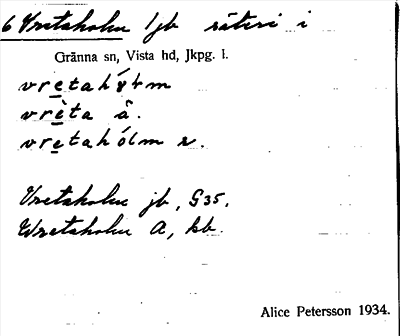 6 Vretaholm 1 jb säteri i
Gränna sn, Vista hd, Jkpg. l.
vretahål m
vrèta å.
vretahólm r.
Vretaholm jb, G35,
Wretaholm A, kb.
Alice Petersson 1934.